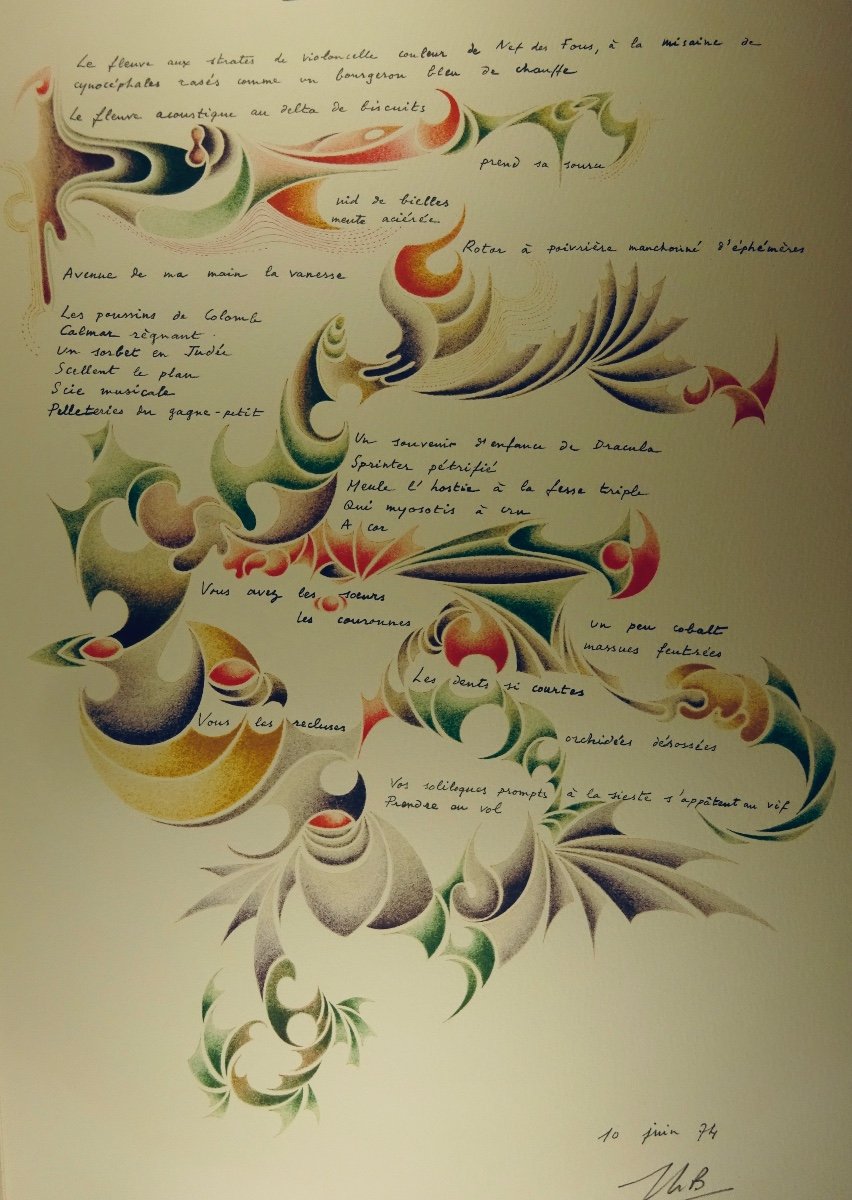 Le fleuve aux strates de violoncelle couleur de Nef des Fous, à la misaine de
cynocéphales rasés comme un bourgeron bleu de chauffe
Le fleuve acoustique au delta de biscuits
prend sa source
nid de bielles
meute aciérée
Rotor à poivrière manchonné d'éphémères
Avenue de ma main la vanesse
Les poussins de Colomb
Calmar régnant
Un sorbet en Judée
Scellent le plan
Scie musicale
Pelleteries du gagne-petit
Un souvenir d'enfance de Dracula
Sprinter pétrifié
Meule l'hostie à la fesse triple
Qui myosotis à cru
A cor
Vous avez les sœurs
les couronnes
un peu cobalt
massues feutrées
Les dents si courtes
Vous les recluses
orchidées désossées
Vos soliloques prompts à la sieste s'appâtent au vif
Prendre au vol
10 juin 74